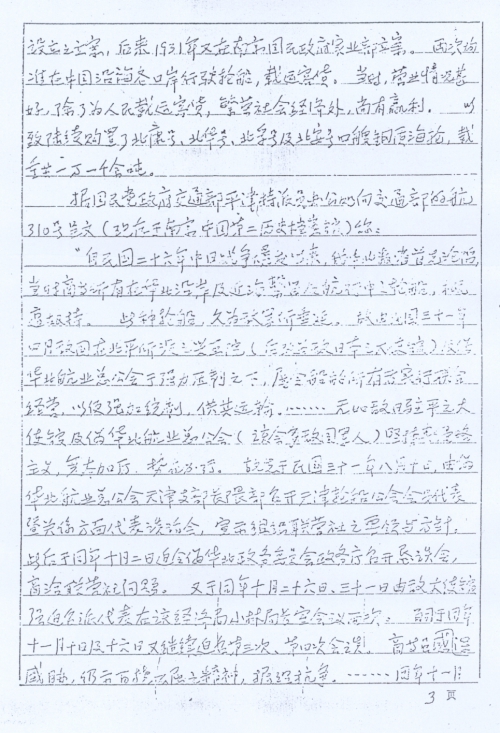 设立立案，后来1931年又在南京国民政府实业部立案。两次均
准在中国沿海各口岸行驶轮船，载运客货。当时，营业情况甚
好，除了为人民载运客货，繁荣社会经济外，尚有赢利。以
致陆续购置了北康号、北华号、北孚号及北安号四艘钢质海轮，载
重共一万一千余吨。
据国民党政府交通部平津特派员办公处向交通部的航
310号呈文（现存于南京中国第二历史档案馆）称：
“自民国二十六年中日战争爆发以来，华北首先沦陷
当时商等所有在华北沿岸及近海暨各航行中之轮船，
劫持。此种轮船，久为敌寇所垂涎。故迨民国三十一年
四月敌国在北平所设之兴亚院（后改为敌日本大使馆）及伪
华北航业总公会于强力压制之下，屡令船舶所有者实行联合
经营，以便强加统制，供其运输，……无如敌日驻平之大
使馆及伪华北航业总公会（该会系敌国军人）坚持
主义，无奈加厉，势在必行。故先于民国三十一年八月十日，由伪
华北航业总公会天津支部长限部召开天津轮船公会会员代表
暨关系方面代表谈话会，宣示组织联营社之要领与方针，
此后于同年十月二日迫令伪华北政务委员会政务厅召开恳谈会，
商洽联营社问题。又于同年十月二十六日、三十一日由敌大使馆
强迫各派代表在该经济局小林局长室会议两次，同于同年
十一月十日及十六日又继续迫集第三次、第四次会议，商等虽
威胁，仍云百折不屈之精神，据理抗争。……同年十一月
3 页